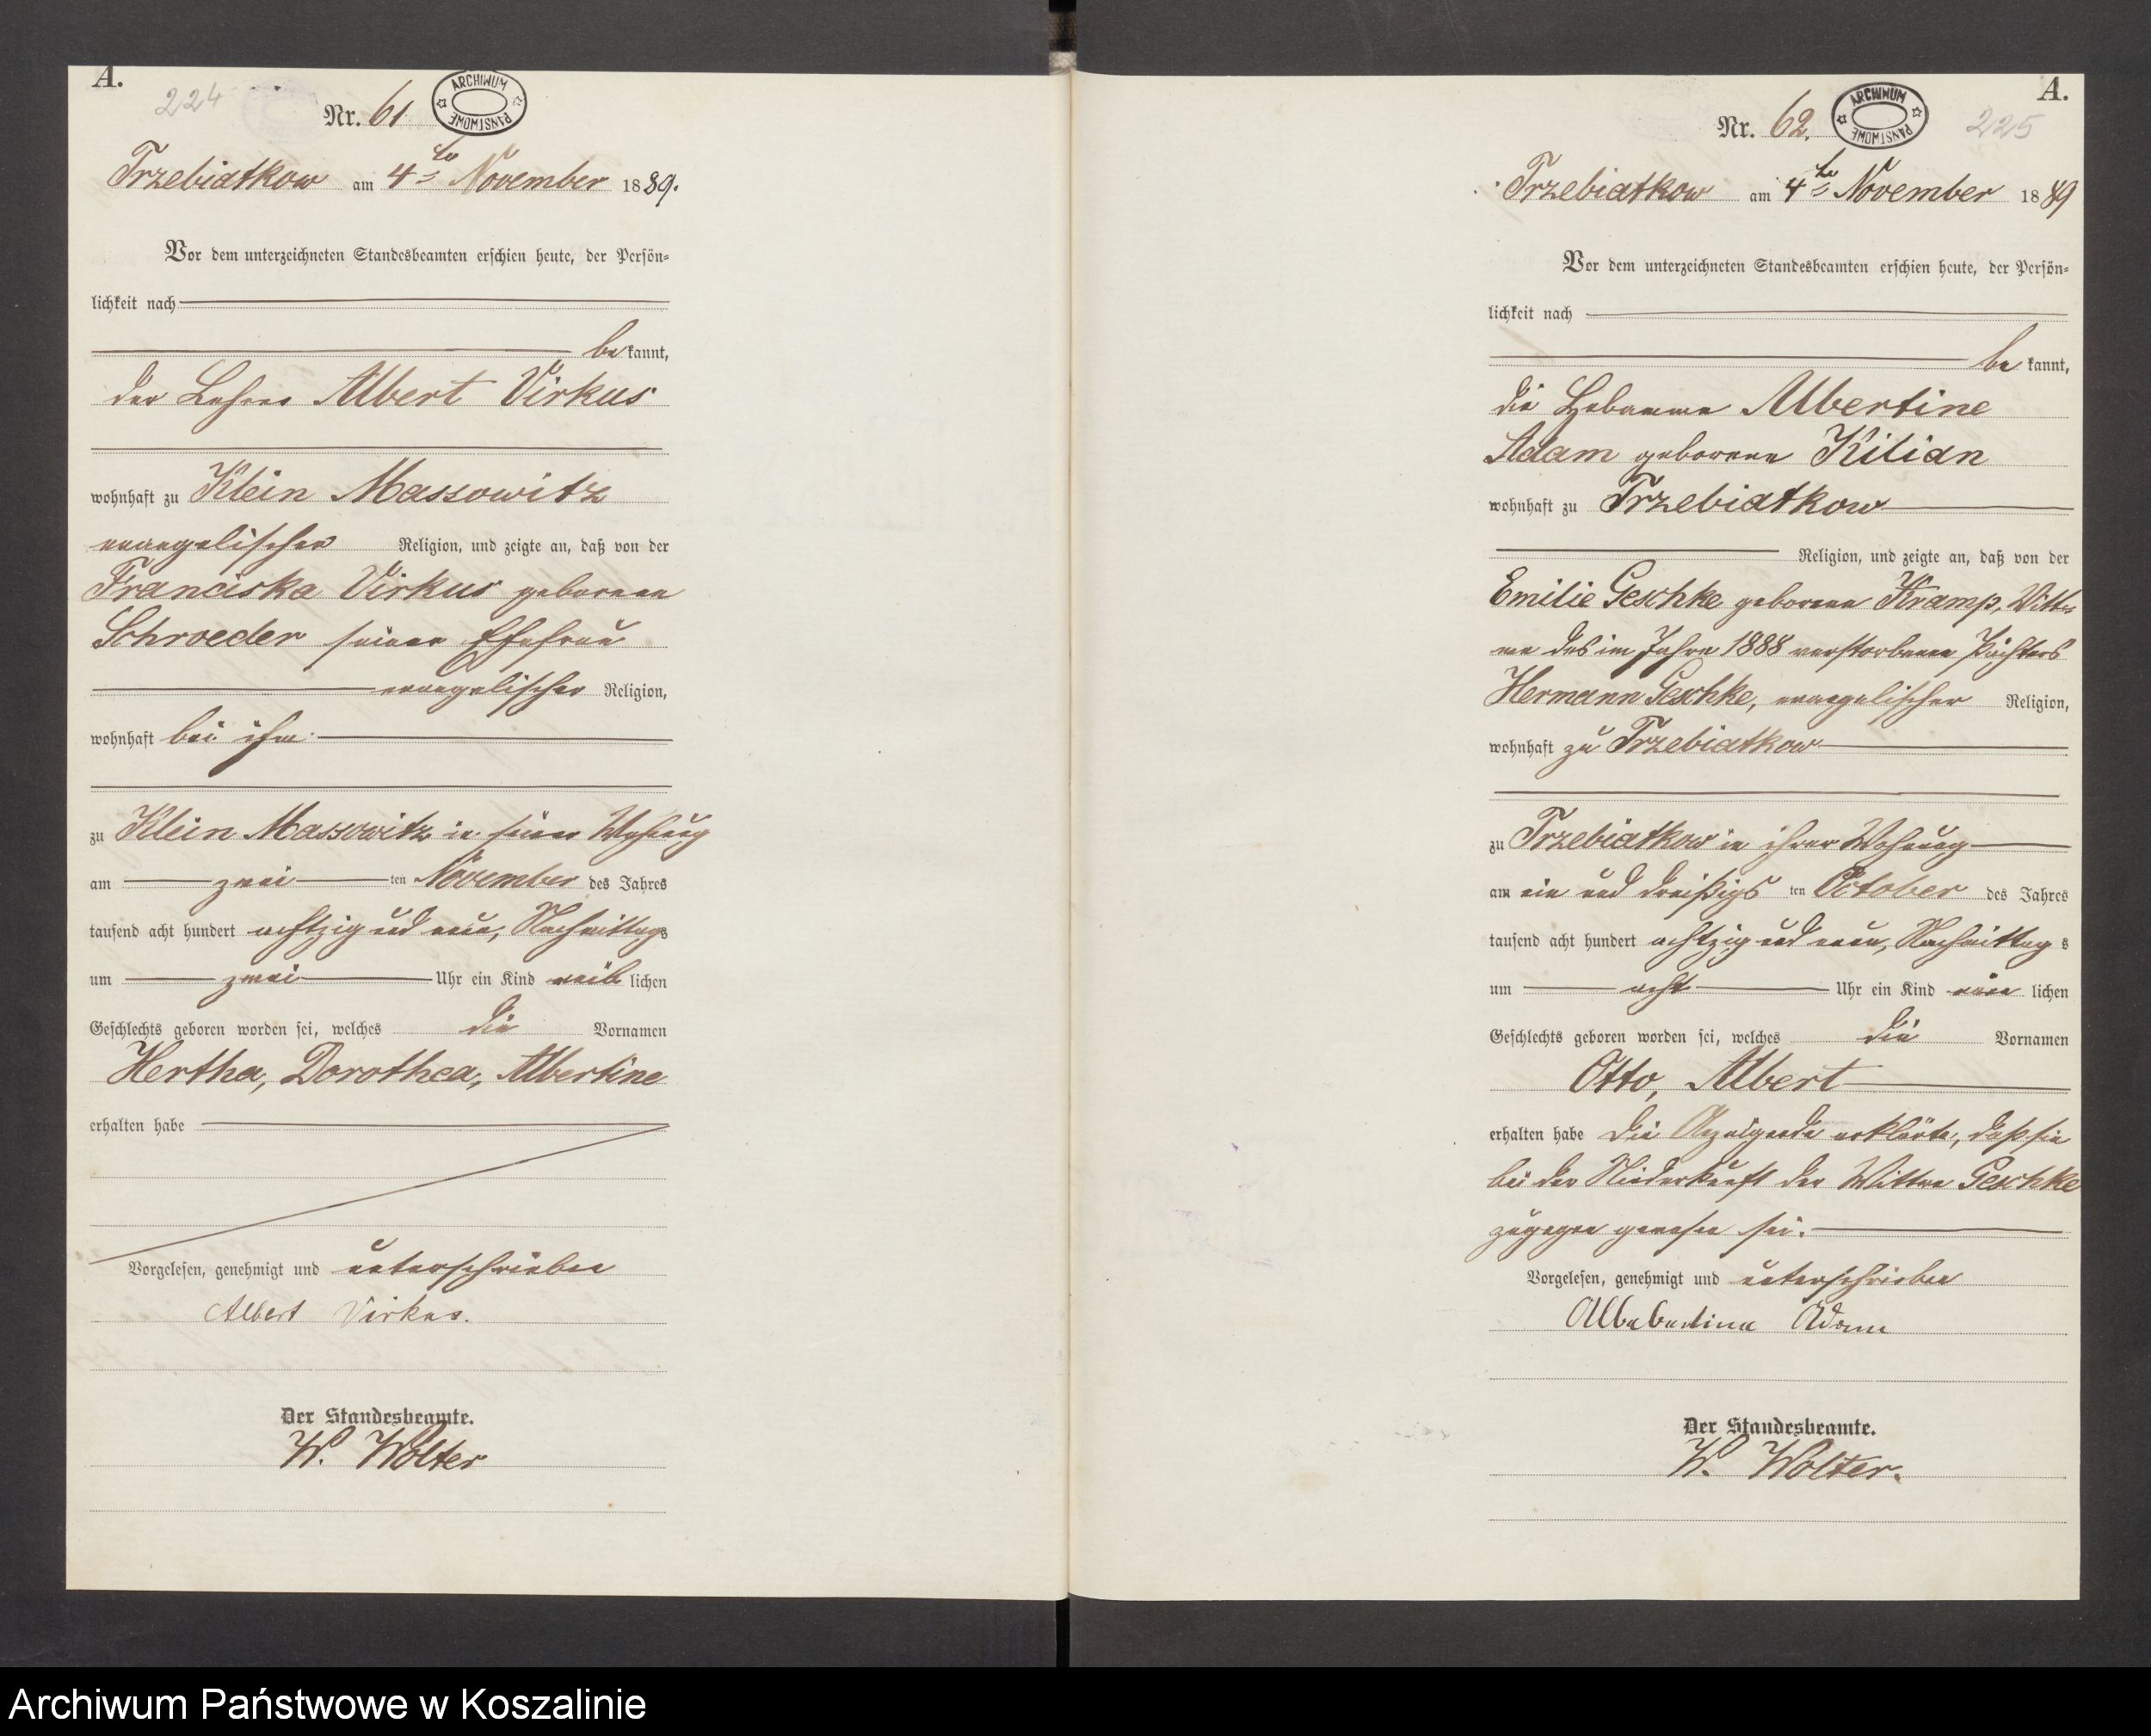 A.
224
Nr. 61
ARCHIWUM PAŃSTWOWE
Trzebiatkow am 4ten November 1889.
Vor dem unterzeichneten Standesbeamten erschien heute, der Persön=
lichkeit nach
bekannt,
der Lehrer Albert Virkus
wohnhaft zu Klein Massowitz
evangelischer Religion, und zeigte an, daß von der
Franciska Virkus geborenen
Schroeder seiner Ehefrau
evangelischer Religion,
wohnhaft bei ihm
zu Klein Massowitz in seiner Wohnung
am zwei ten November des Jahres
tausend acht hundert achtzig und neun, Nachmittags
um zwei Uhr ein Kind weib lichen
Geschlechts geboren worden sei, welches die Vornamen
Hertha, Dorothea, Albertine
erhalten habe
Vorgelesen, genehmigt und unterschrieben
Albert Virkus.
Der Standesbeamte.
W. Wolter
A.
Nr. 62.
ARCHIWUM PAŃSTWOWE
225
Trzebiatkow am 4ten November 1889
Vor dem unterzeichneten Standesbeamten erschien heute, der Persön=
lichkeit nach
be kannt,
die Hebamme Albertine
Adam geborene Kilian
wohnhaft zu Trzebiatkow
Religion, und zeigte an, daß von der
Emilie Geschke geborene Kramp, Witt=
we des im Jahre 1888 verstorbenen Pächters
Hermann Geschke, evangelischer Religion,
wohnhaft zu Trzebiatkow
zu Trzebiatkow in ihrer Wohnung
am ein und dreißigs ten October des Jahres
tausend acht hundert achtzig und neun, Nachmittag s
um acht Uhr ein Kind männ lichen
Geschlechts geboren worden sei, welches die Vornamen
Otto, Albert
erhalten habe Die Anzeigende erklärte, daß sie
bei der Niederkunft der Wittwe Geschke
zugegen gewesen sei.
Vorgelesen, genehmigt und unterschrieben
Adam
Der Standesbeamte.
W. Wolter.
Archiwum Państwowe w Koszalinie